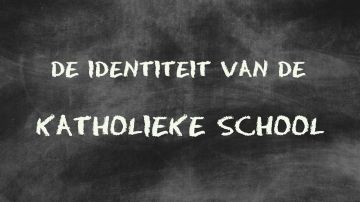 DE IDENTITEIT VAN DE
KATHOLIEKE SCHOOL